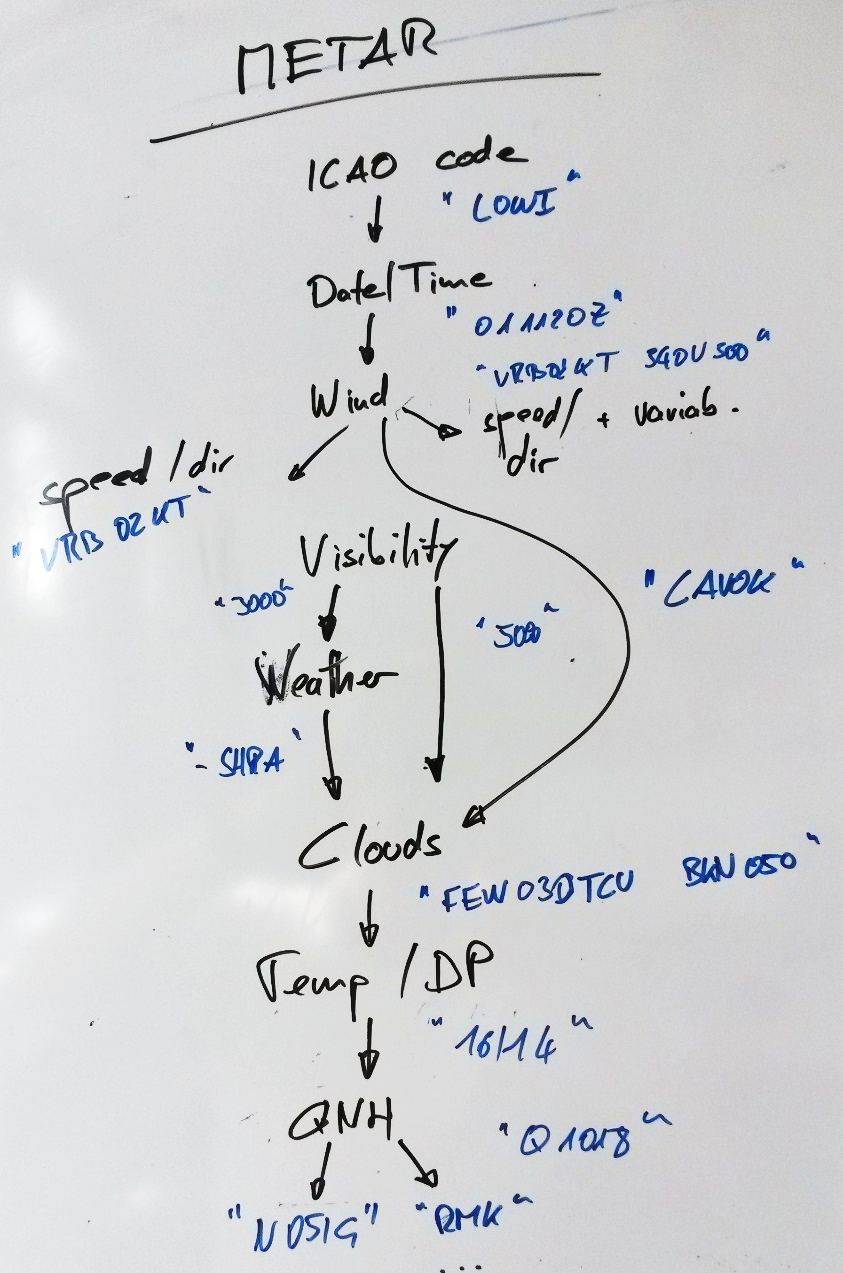 METAR
ICAO code
"LOWI"
Date/Time
"011120Z"
"VRB02KT 340V500"
Wind
speed/ + variab.
dir
speed/dir
"VRB02KT"
Visibility
"3000"
"CAVOK"
"5000"
Weather
"-SHRA"
Clouds
"FEW030TCU BKN050"
Temp/DP
"16/14"
QNH
"Q1018"
"NOSIG" "RMK"
...